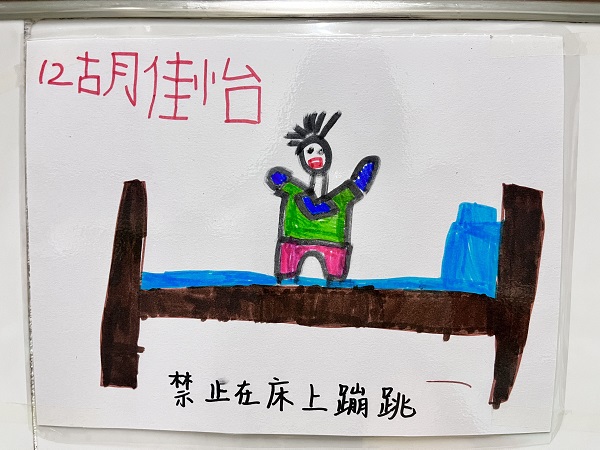 12胡佳怡
禁止在床上蹦跳